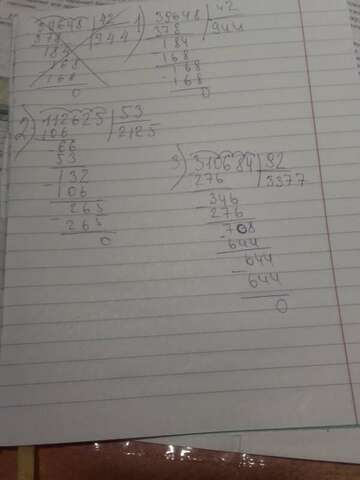 39648 | 42
378 | 944
184
168
168
168
0
1) 39648 | 42
378 | 944
184
168
168
168
0
2) 112625 | 53
106 | 2125
66
53
132
106
265
265
0
3) 310684 | 92
276 | 3377
346
276
708
644
644
644
0